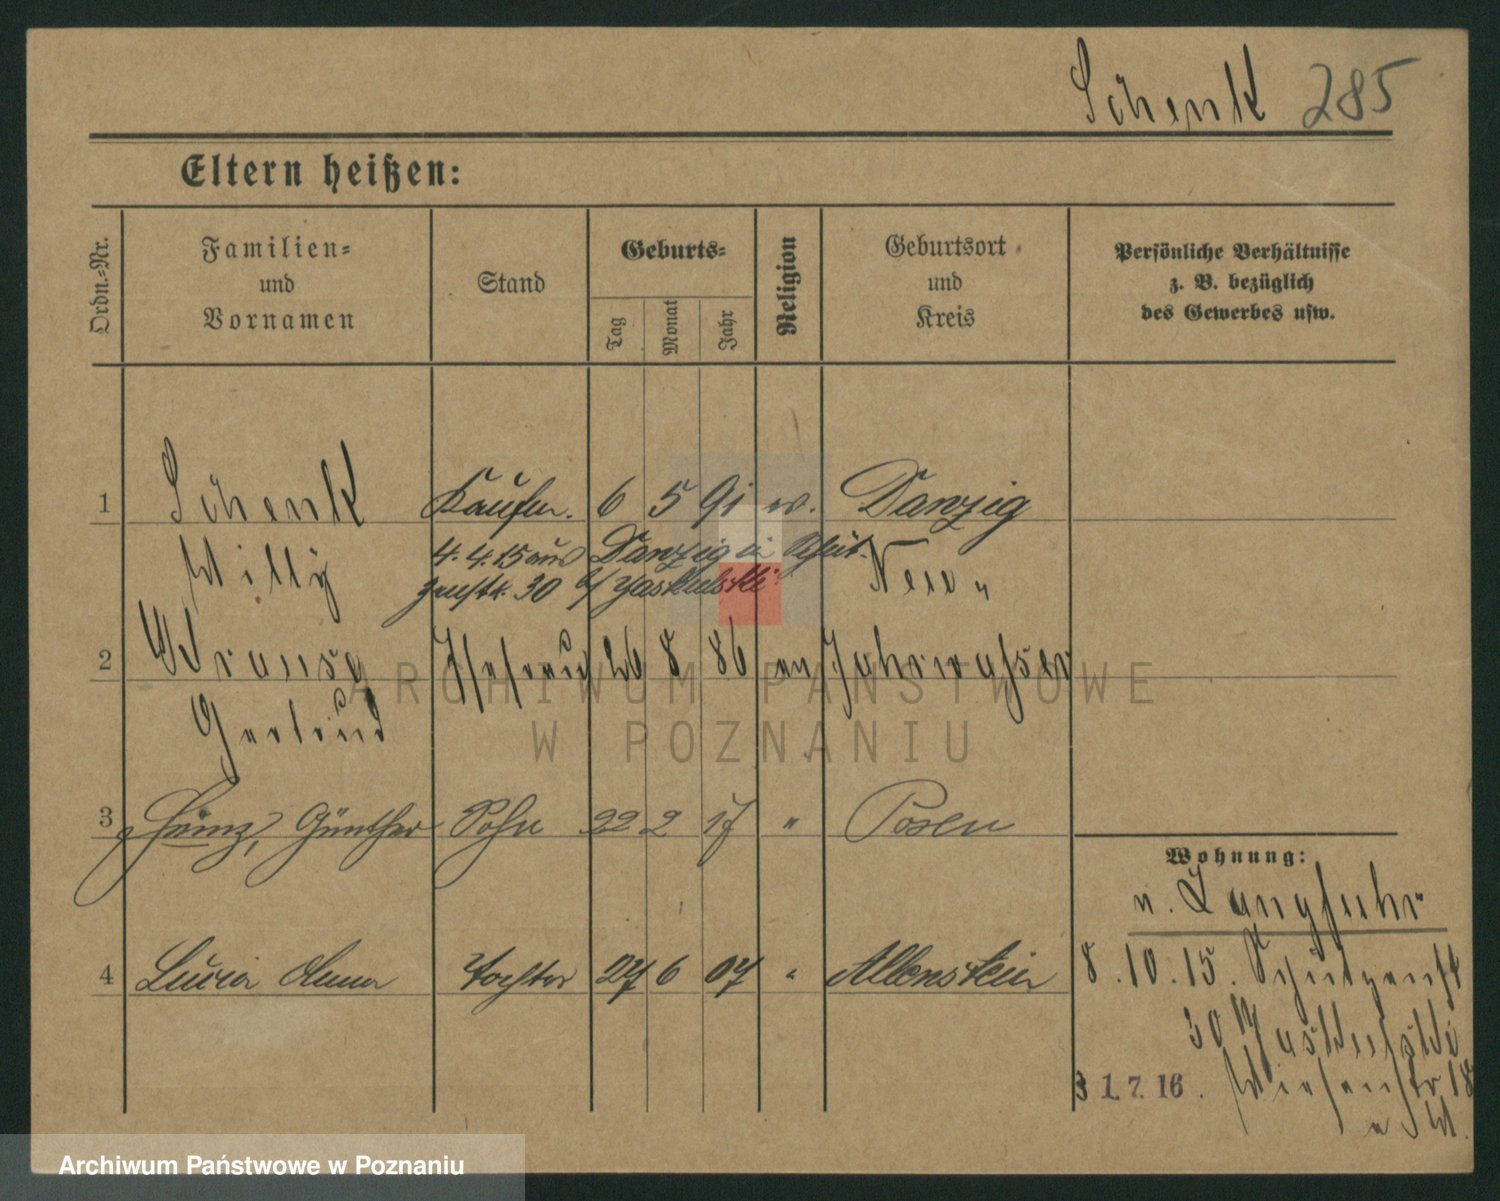 Schenk 285
Eltern heißen:
Ordn.-Nr.
Familien-
und
Vornamen
Stand
Geburts-
Tag
Monat
Jahr
Religion
Geburtsort
und
Kreis
Persönliche Verhältnisse
z. B. bezüglich
des Gewerbes usw.
1 Schenk Kaufm. 6 5 91 Danzig
Willy
4. 4. 15 aus Danzig
30
Neu "
2 Krause Ehefrau 26 8 86 ev Fahrwasser
Gertrud
3 Heinz, Günther Sohn 22 2 17 " Posen
4 Lucia Anna Tochter 27 6 07 " Allenstein
Wohnung:
v. Langfuhr
8. 10. 15. Schützenstr
30
31. 7. 16. Wiesenstr 18
ARCHIWUM PAŃSTWOWE
W POZNANIU
Archiwum Państwowe w Poznaniu